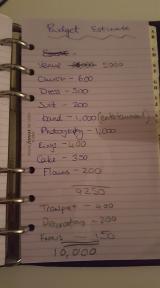 Budget Estimate
Venue - 5000
Church - 600
Dress - 500
Suit - 200
band - 1,000 (entertainment)
Photography - 1,000
Rings - 400
Cake - 350
Flowers - 200
9250
Transport - 400
Decorating - 200
150
10,000